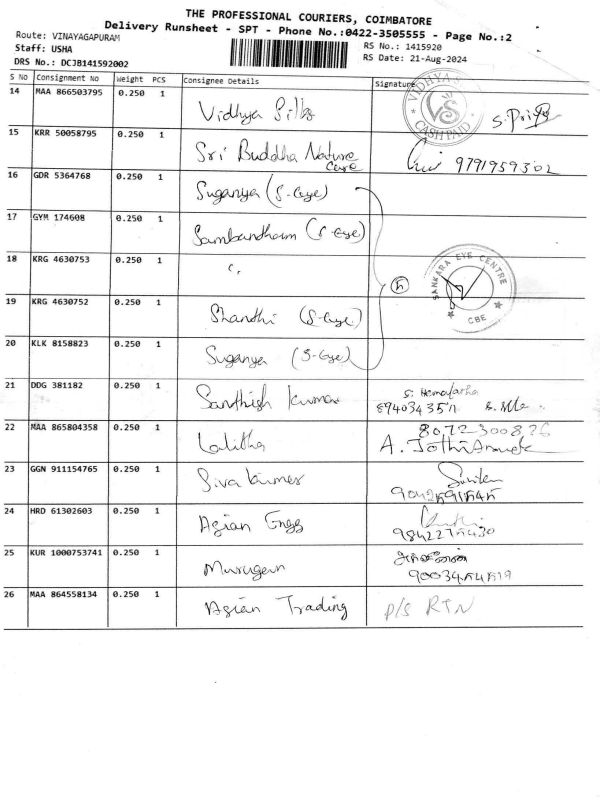 THE PROFESSIONAL COURIERS, COIMBATORE
Delivery Runsheet - SPT - Phone No.:0422-3505555 - Page No.:2
Route: VINAYAGAPURAM
Staff: USHA
DRS No.: DCJB141592002
RS No.: 1415920
RS Date: 21-Aug-2024
S No Consignment No Weight PCS Consignee Details Signature
14 MAA 866503795 0.250 1 Vidhya Silks VIDHYA CASH PAID S. Priya
15 KRR 50058795 0.250 1 Sri Buddha Nature Care 9791959302
16 GDR 5364768 0.250 1 Suganya (S-Eye)
17 GYM 174608 0.250 1 Sambandham (S-Eye)
18 KRG 4630753 0.250 1 "
SANKARA EYE CENTRE CBE
19 KRG 4630752 0.250 1 Shandhi (S-Eye)
20 KLK 8158823 0.250 1 Suganya (S-Eye)
21 DDG 381182 0.250 1 Santhish kumar S. Hemalatha
22 MAA 865804358 0.250 1 Lalitha A. Jothi
23 GGN 911154765 0.250 1 Siva kumar
24 HRD 61302603 0.250 1 Asian Engg
25 KUR 1000753741 0.250 1 Murugan
26 MAA 864558134 0.250 1 Asian Trading P/S RTN